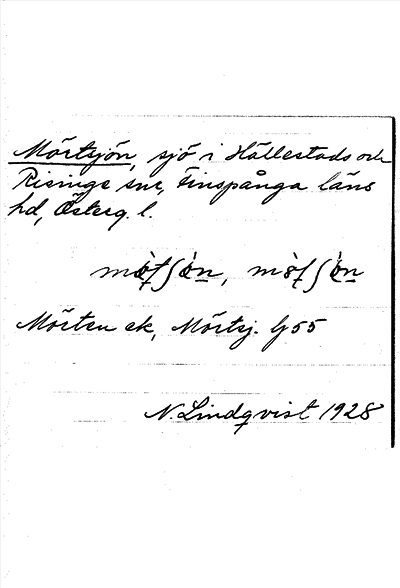 Mörtsjön, sjö i Hällestads och
Risinge snr, Finspånga läns
hd, Österg. l.
mø̀tʃø̀n, mø̀tʃø̀n
Mörten ek, Mörtsj. G 55
N. Lindqvist 1928